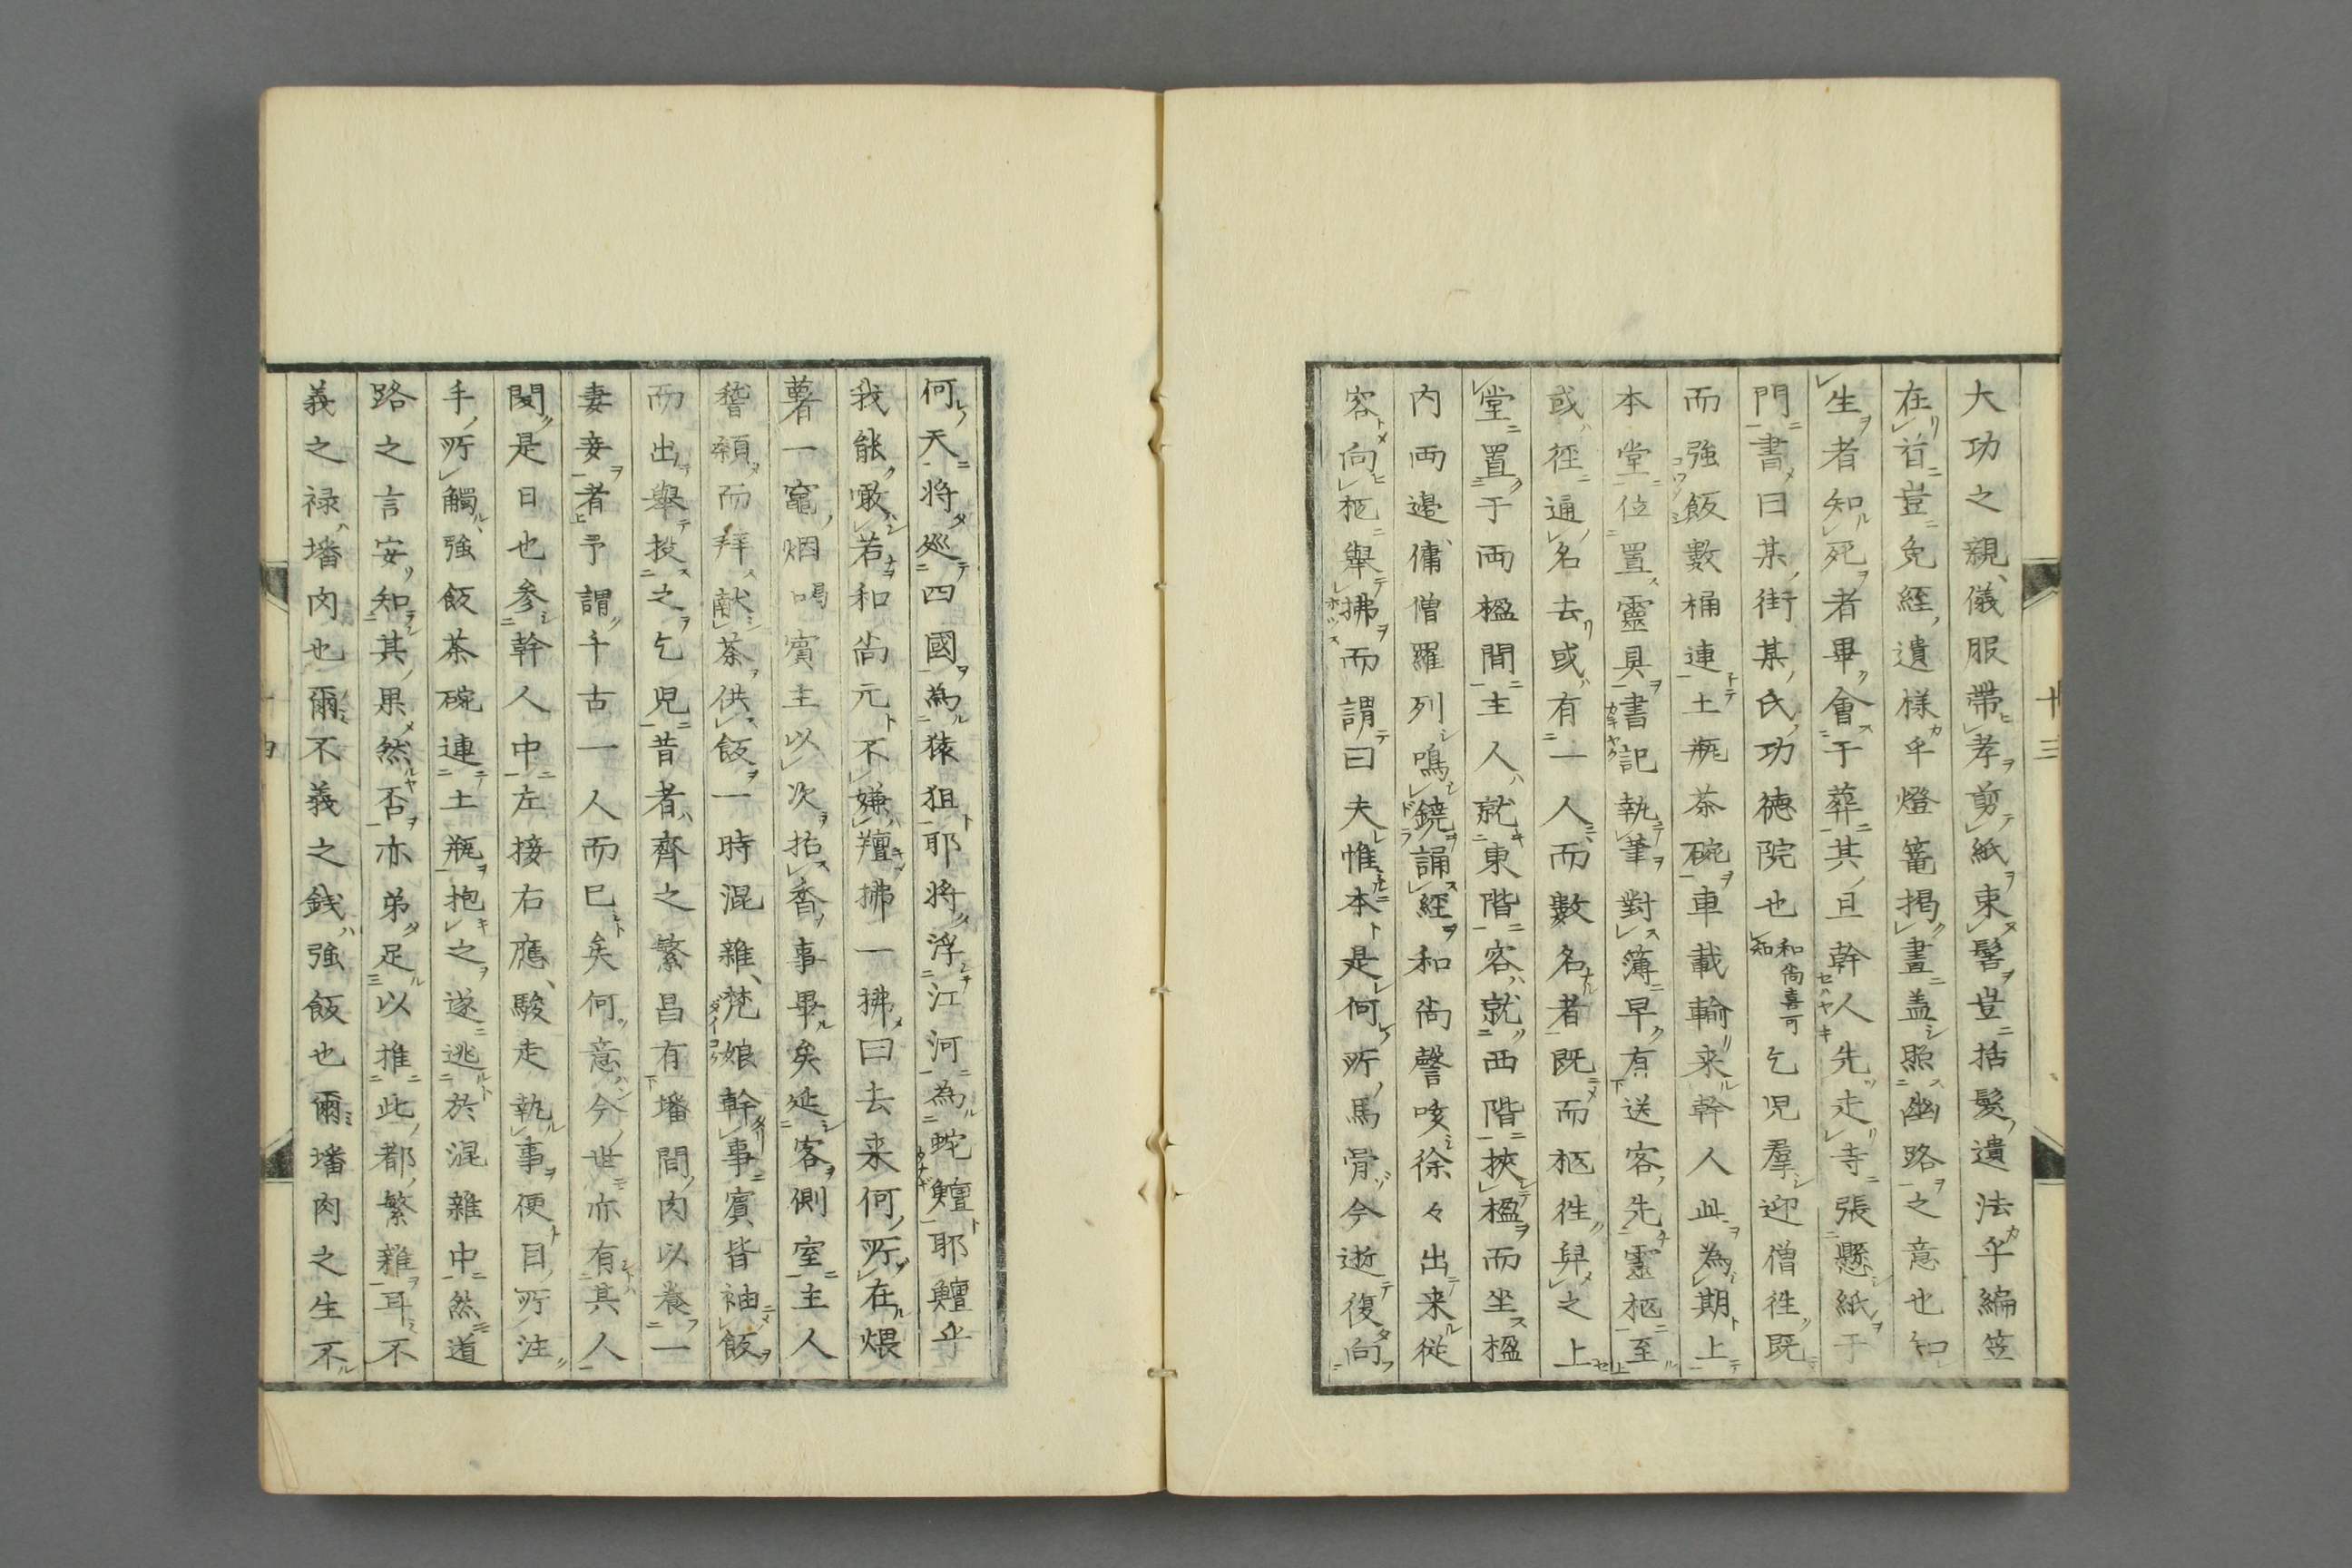 大功之親、儀服帶孝、剪紙束髻、豈括髮遺法乎、編笠
在首、豈免經遺樣乎、燈篭揭晝、盖照幽路之意也、知
生者知死者畢會于葬、其旦幹人先走寺、張懸紙于
門、書曰某街某氏功徳院也 和尚喜可知 乞児羣迎僧徃、既
而強飯數桶連土瓶茶碗車載輪来、幹人此為期、上
本堂位置靈具、書記執筆對簿、早有送客先靈柩至
或徑通名去、或有一人而數名者、既而柩徃、舁之上
堂、置于両楹間、主人就東階、客就西階、挾楹而坐、楹
内両邉、傭僧羅列、鳴鐃誦經、和尚謦咳徐々出来、従
容向柩、舉拂而謂曰、夫惟本是何所馬骨、今逝復向
十三
何天、将巡四國為猿狙耶、将浮江河為蛇鱣耶、鱣乎
我能噉若、和尚元不嫌羶、拂一拂曰、去来何所在、煨
薯一竃烟、喝、賓主以次拈香、事畢矣、延客側室、主人
稽顙而拜、献茶供飯、一時混雜、梵娘幹事、賓皆袖飯
而出、舉投之乞児、昔者齊之繁昌、有墦間肉以養一
妻妾者、予謂千古一人而已矣、何意今世亦有其人
閔是日也、参幹人中、左接右應、駿走執事、便目所注
手所觸、強飯茶碗連土瓶抱之、遂逃於混雜中、然道
路之言、安知其果然否、亦弟足以推此都繁雜耳、不
義之禄、墦肉也、爾不義之錢、強飯也、爾墦肉之生不